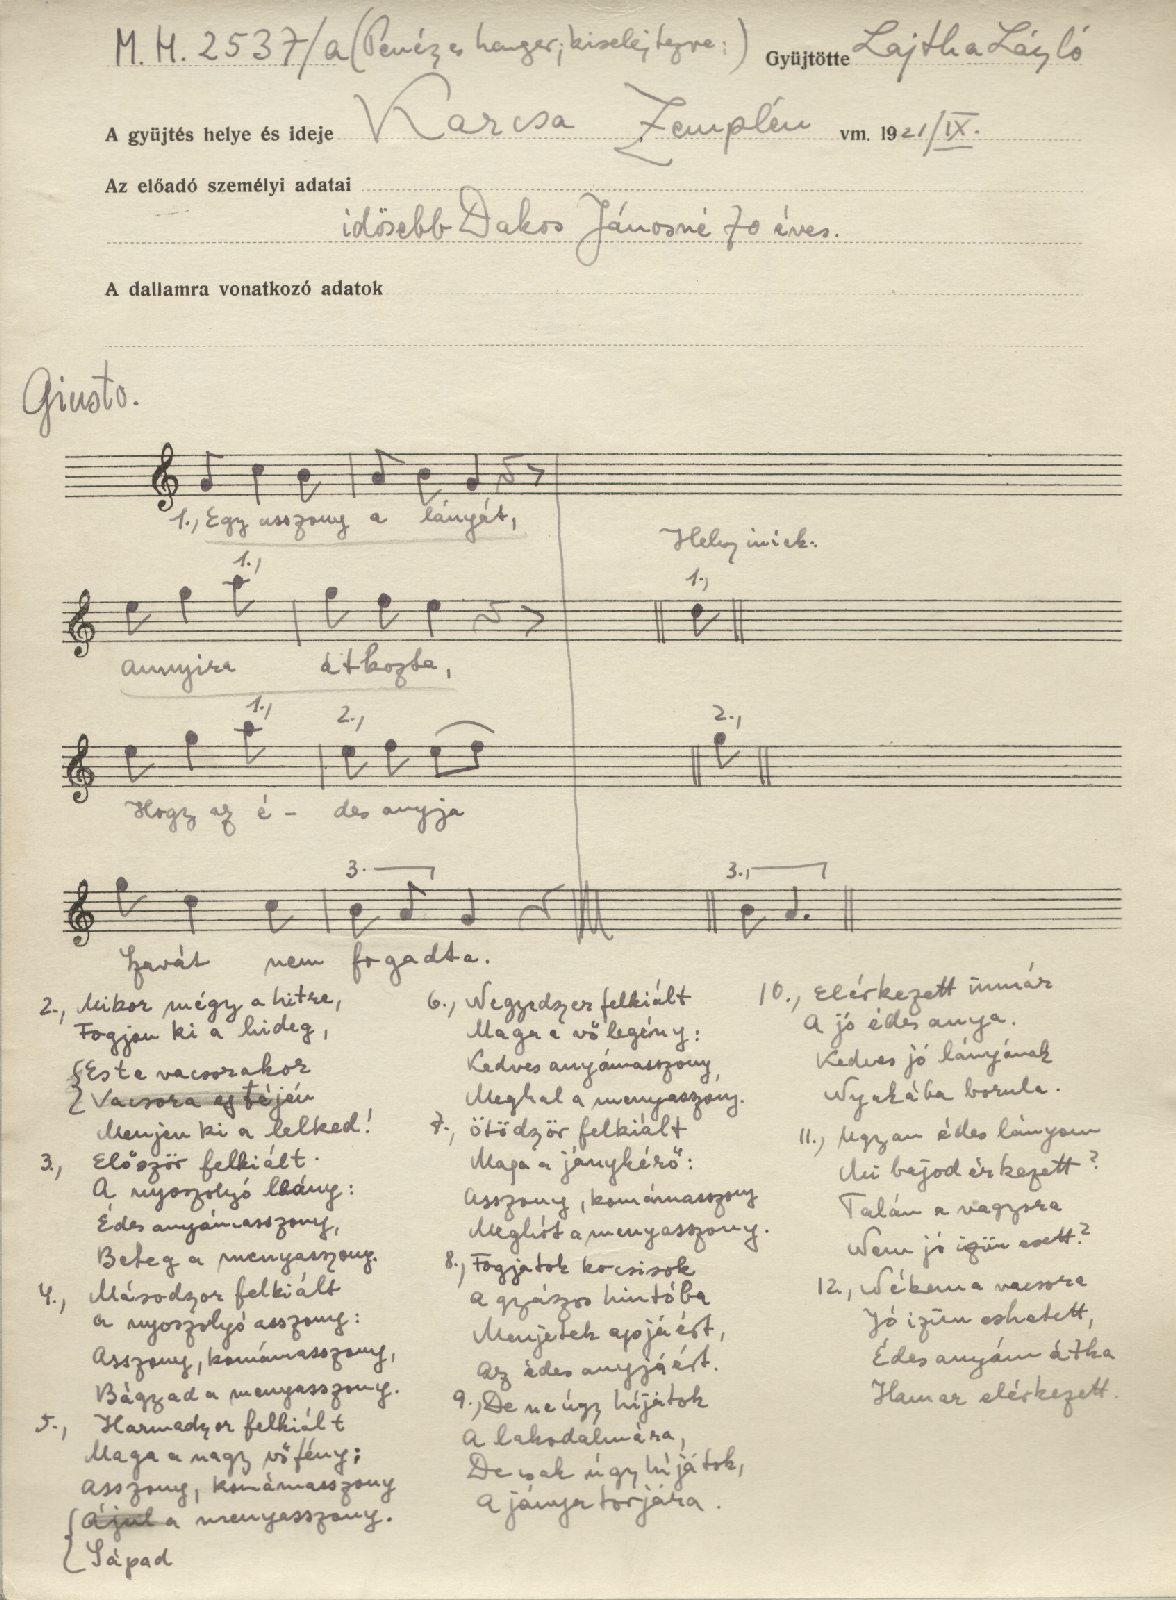 M. H. 2537/a (Penész henger, kiselejtezve:) Gyüjtötte Lajtha László
A gyüjtés helye és ideje Karcsa Zemplén vm. 1921/IX.
Az előadó személyi adatai
idősebb Dakos Jánosné 70 éves.
A dallamra vonatkozó adatok
Giusto.
1., Egy asszony a lányát,
Helyiniek:
1.,
1.,
annyira átkozta,
1.,
2.,
2.,
Hogy az é- des anyja
3.
3.,
Szavát nem fogadta.
2., Mikor mégy a hitre,
Fogjon ki a hideg,
Este vacsorakor
Vacsora
Menjen ki a lelked!
3., Először felkiált.
A nyoszolyó leány:
Édes anyámasszony,
Beteg a menyasszony.
4., Másodzor felkiált
a nyoszolyó asszony:
Asszony, komámasszony,
Bágyad a menyasszony.
5., Harmadzor felkiált
Maga a nagy vőfény;
Asszony, komámasszony
Ájul a menyasszony.
Sápad
6., Negyedszer felkiált
Maga a vőlegény:
Kedves anyámasszony
Meghal a menyasszony.
7., Ötödzör felkiált
Maga a jánykérő:
Asszony, komámasszony
Meghót a menyasszony.
8., Fogjatok kocsisok
A gyászos hintóba
Menjetek apjáért,
Az édes anyjáért.
9., De ne úgy híjátok
A lakodalmára,
De csak úgy híjátok,
A jánya torjára.
10., Elérkezett immár
A jó édes anya.
Kedves jó lányának
Nyakába borula.
11., Ugyan édes lányom
Mi bajod érkezett?
Talán a vagyora
Nem jó izün esett?
12., Nékem a vacsora
Jó izün eshetett,
Édes anyám átka
Hamar elérkezett.